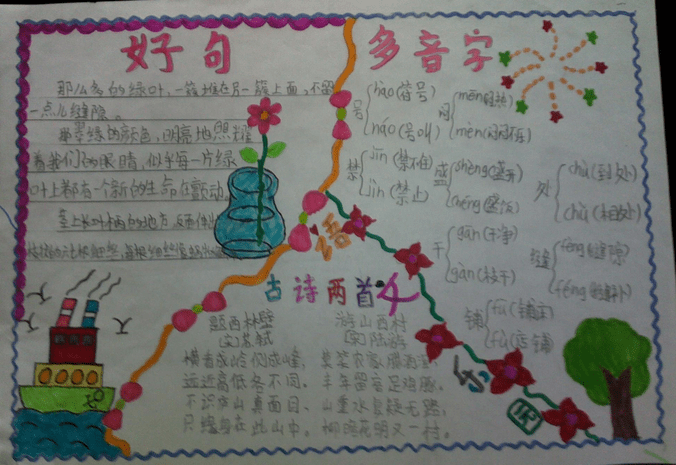 好句
那么多的绿叶，一簇堆在另一簇上面，不留
一点儿缝隙。
翠绿的颜色，明亮地照耀
着我们的眼睛，似乎每一片绿
叶上都有一个新的生命在颤动
茎上长叶柄的地方，反面伸出
多音字
号
hào(符号)
háo(号叫)
闷
mēn(闷热)
mèn
禁
jīn(禁不住)
jìn(禁止)
盛
shèng
chéng(盛饭)
处
chù(到处)
chǔ(相处)
干
gān(干净)
gàn(枝干)
缝
fèng(缝隙)
féng
铺
pū
pù(店铺)
语
文
乐
园
古诗两首
题西林壁
(宋)苏轼
横看成岭侧成峰，
远近高低各不同。
不识庐山真面目，
只缘身在此山中。
游山西村
(宋)陆游
莫笑农家腊酒浑，
丰年留客足鸡豚。
山重水复疑无路，
柳暗花明又一村。